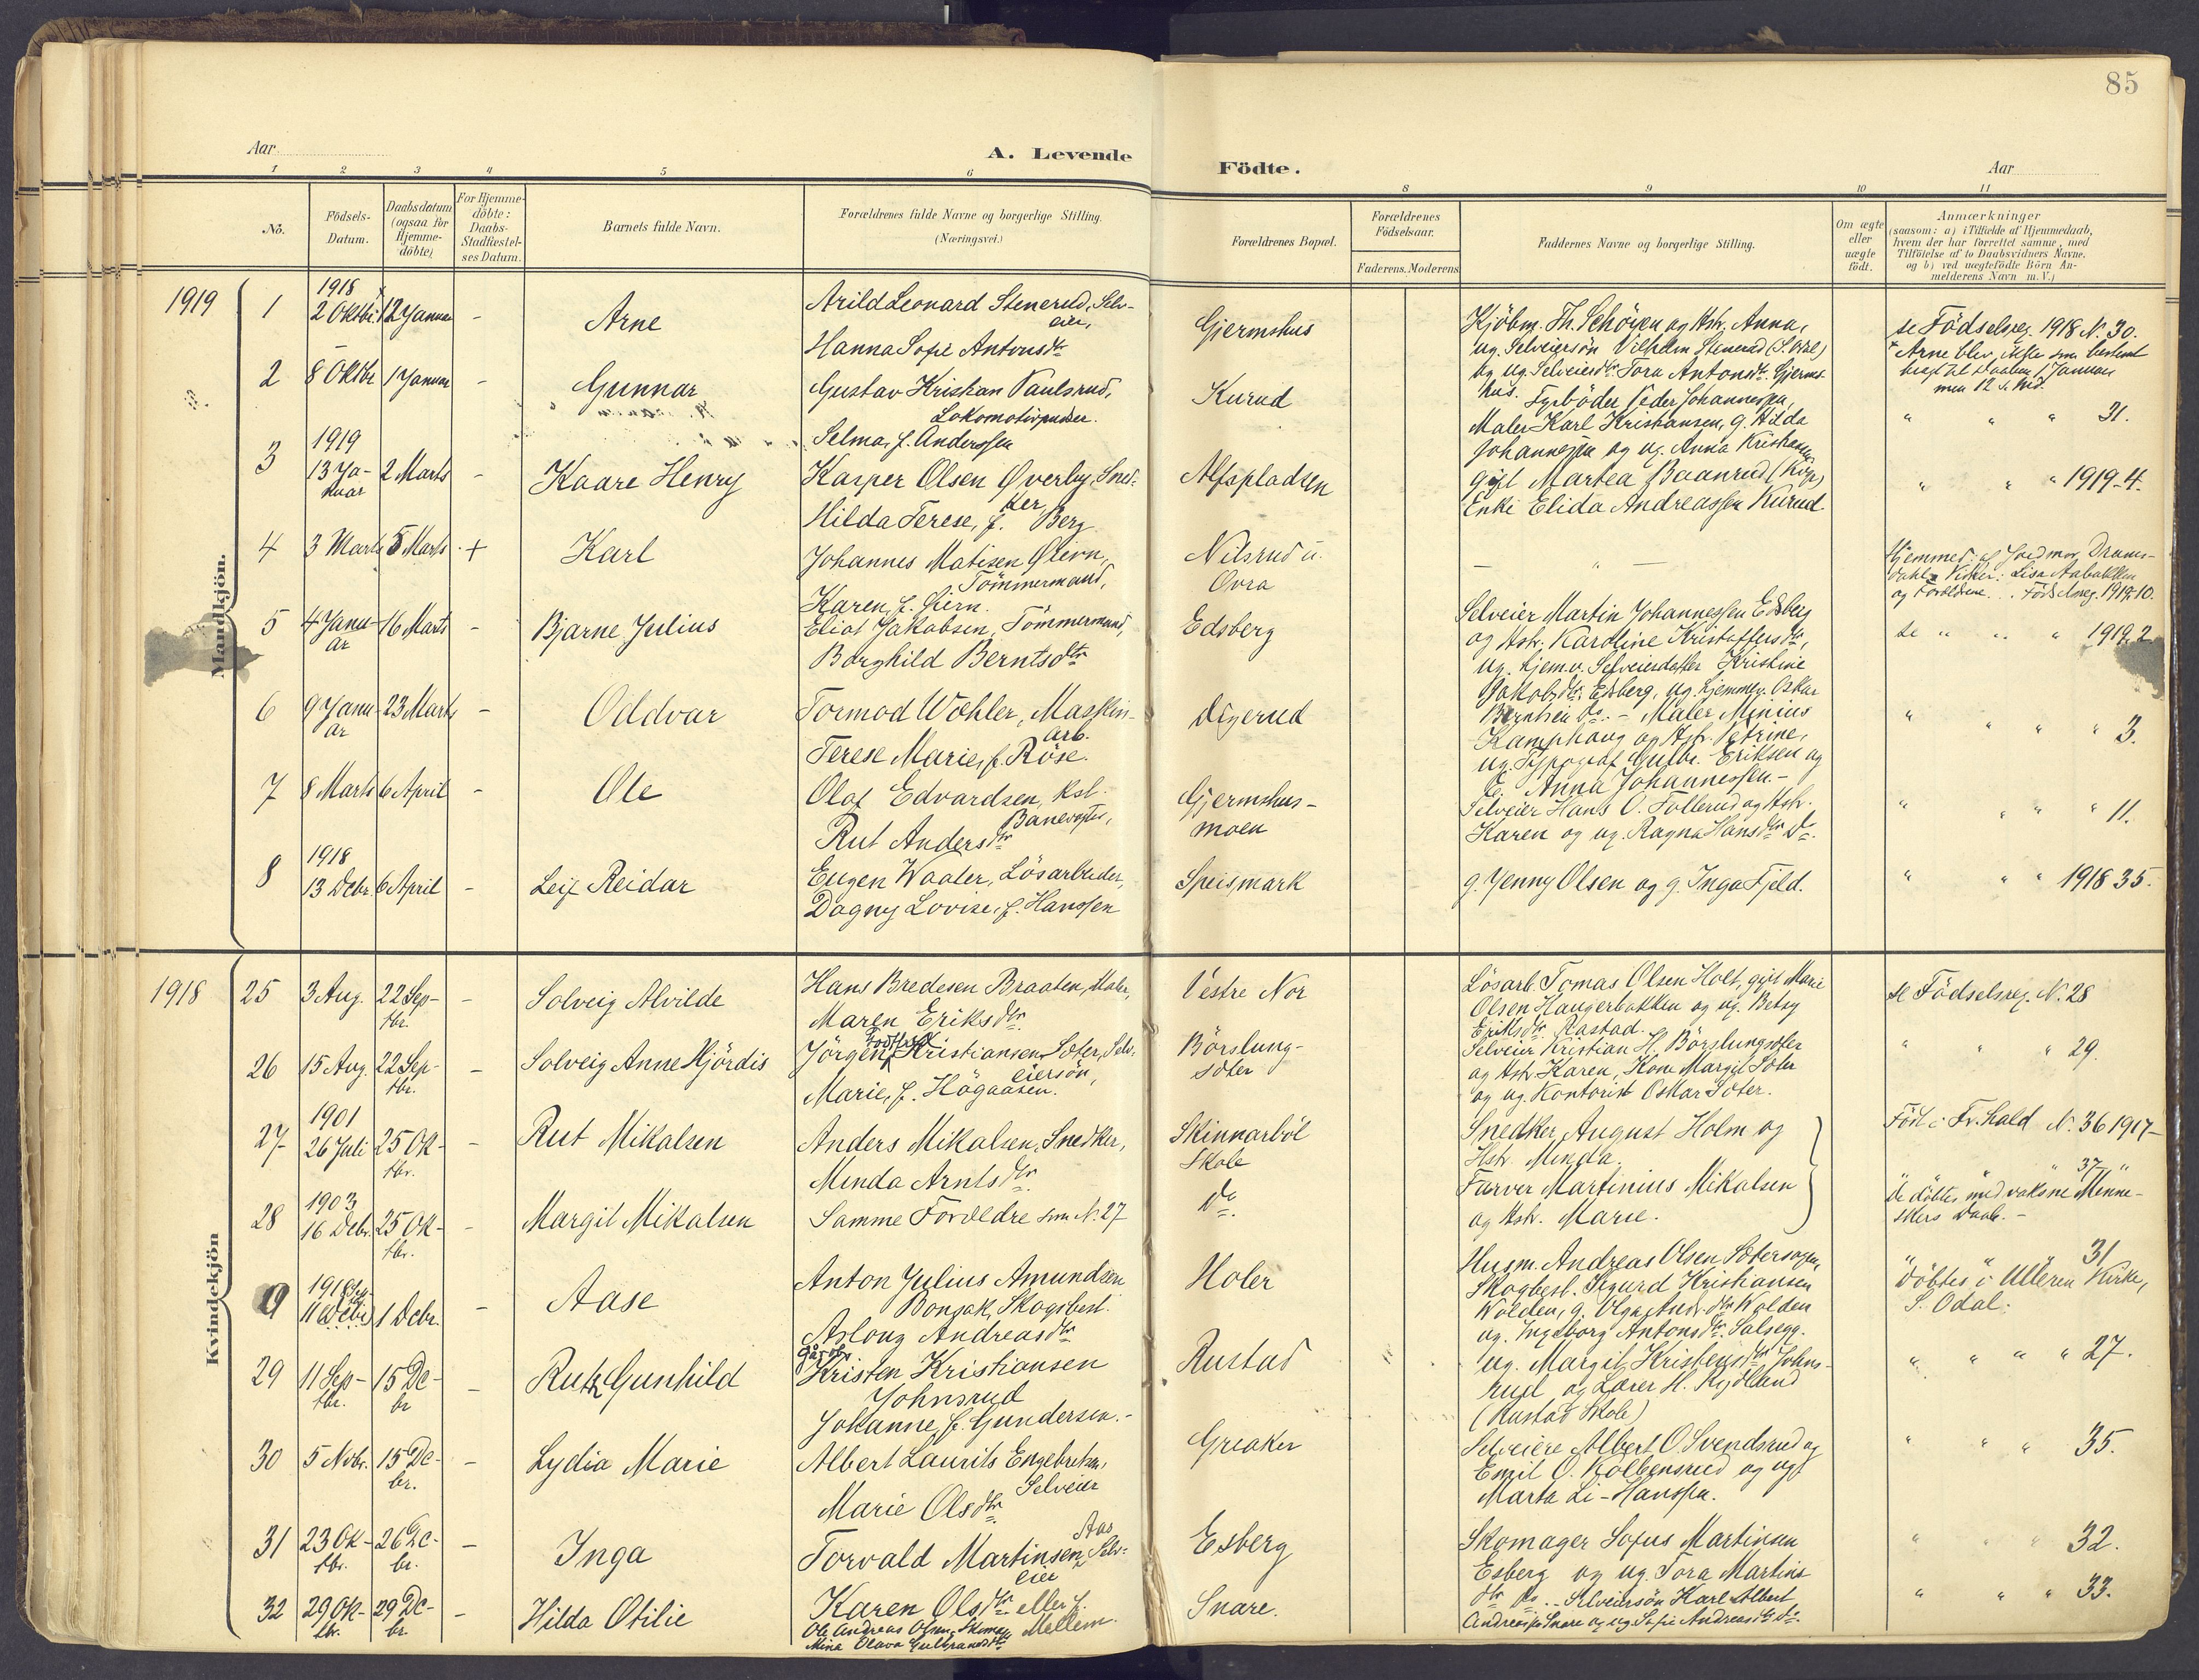 85
Aar
A. Levende
Födte.
Aar
1 2 3 4 5 6 8 9 10 11
No.
Födsels-
Datum.
Daabsdatum
(ogsaa for
Hjemme-
döbte)
For Hjemme-
döbte:
Daabs-
Stadfæstel-
ses Datum.
Barnets fulde Navn.
Forældrenes fulde Navne og borgerlige Stilling.
(Næringsvei.)
Forældrenes Bopæl.
Forældrenes
Födselsaar.
Faderens. Moderens
Faddernes Navne og borgerlige Stilling.
Om ægte
eller
uægte
födt.
Anmærkninger
(saasom: a) i Tilfælde af Hjemmedaab,
hvem der har forrettet samme, med
Tilföielse af to Daabsvidners Navne,
og b) ved uægtefödte Börn An-
melderens Navn m. V.)
Mandkjön.
1919
1
1918
2 Oktbr.
12 Januar
-
Arne
Arild Leonard Stenersrud, Selv-
eier,
Hanna Sofie Antonsdtr
Gjermshus
Kjöbm. Th. Schöyen og Hstr. Anna,
ug. Selveiersön Vilhelm Stenerud (S. Odal)
og ug. Selveierdtr Tora Antonsdtr Gjerms-
hus.
se Födselsreg. 1918 N. 30.
+ Arne blev ikke som bestemt
bragt til Daaben 1 Januar
men 12 s. Md.
2
8 Oktbr
1 Januar
-
Gunnar
Gustav Kristian Paulsrud,
Lokomotivpudser.
Selma, f. Anderssen
Kurud
Fyrböder Peder Johannessen,
Maler Karl Kristiansen, g. Hilda
Johannessen og ug. Anna Kristiansen
" " " 31.
3
1919
13 Ja-
nuar
2 Marts
-
Kaare Henry
Kasper Olsen Øverby, Sned-
ker,
Hilda Terese, f. Berg
Alfspladsen
gift Martea Baanrud
Enke Elida Andreassen Kurud.
" " " 1919-4.
4
3 Marts
5 Marts
+
Karl
Johannes Matisen Øiern,
Tömmermand,
Karen, f. Øiern.
Nilsrud u.
Ovra
- " -
Hjemmed. af Jordmor Drams-
dahl. Vidner: Lisa Aabakken
og Forældrene. Födselsreg. 1919-10.
5
4 Janu-
ar
16 Marts
-
Bjarne Julius
Eliot Jakobsen, Tömmermand,
Borghild Berntsdtr
Edsberg
Selveier Martin Johannessen Edsberg
og Hstr. Karoline Kristoffersdtr,
ug. hjemv. Selveierdatter Kristine
Jakobsdtr Edsberg, ug. hjemmev. Oskar
Berntsen Do. -
se " " " 1919. 2
6
9 Janu-
ar
23 Marts
-
Oddvar
Tormod Wöhler, Masskin-
arb.
Terese Marie, f. Röse.
Digerud
Maler Minius
Kamphaug og Hstr. Petrine,
ug. Typograf Gulbr. Eriksen og
Anna Johannessen. -
" " " " 3.
7
8 Marts
6 April
-
Ole
Olof Edvardsen, kst.
Banevogter,
Rut Andersdtr
Gjermshus-
moen
Selveier Hans O. Tollerud og Hstr.
Karen og ug. Ragna Hansdtr Do.
" " " " 11.
8
1918
13 Debr
6 April
-
Leif Reidar
Eugen Waaler, Lösarbeider,
Dagny Lovise, f. Hanssen
Speismark
g. Jenny Olsen og g. Inga Fjeld.
" " " 1918 35.
Kvindekjön
1918
25
3 Aug.
22 Sep-
tbr.
-
Solveig Alvilde
Hans Bredesen Braaten, Maler,
Maren Eriksdtr
Vestre Nor
Lösarb. Tomas Olsen Holt, gift Marie
Olsen Haugerbakken og ug. Betsy
Eriksdtr Rastad.
se Födselsreg. N. 28
26
15 Aug.
22 Sep-
tbr.
-
Solveig Anne Hjördis
Jörgen Kristiansen Soter, Selv-
eiersön,
Marie, f. Högaasen.
Börslung-
soter
Selveier Kristian H. Börslungsoter
og Hstr Karen, Kone Margit Soter
og ug. Kontorist Oskar Soter.
" " " 29.
27
1901
26 Juli
25 Ok-
tbr.
-
Rut Mikalsen
Anders Mikalsen, Snedker,
Minda Arntsdtr
Skinnarböl
Skole
Snedker August Holm og
Hstr. Minda.
Födt i Fr.hald N. 36 1917-
28
1903
16 Debr.
25 Ok-
tbr.
-
Margit Mikalsen
Samme Forældre som N. 27
Do.
Farver Martinius Mikalsen
og Hstr. Marie.
" " 37 "
De döbtes med voksne Menne-
skers Daab. -
1918
11
1 Debr.
-
Aase
Anton Julius Amundsen
Bongak, Skogsbest.
Asloug Andreasdtr
Holer
Husm. Andreas Olsen Sötersagen,
Skogbest. Sigurd Kristiansen
Wolden, g. Olga Andr.dtr Wolden
ug. Ingeborg Antonsdtr Salsegg.
" " " 31
Döbtes i Ulleren Kirke,
S. Odal.
29
11 Sep-
tbr.
15 De-
br
-
Rut Gunhild
Kristen Kristiansen
Johnsrud
Johanne, f. Gundersen. -
Rustad
ug. Margit Kristensdtr Johns-
rud og Lærer H. Rydland
(Rustad Skole)
" " " " 27.
30
5 Novbr.
15 De-
br.
-
Lydia Marie
Albert Laurits Engebretsen,
Selveier
Marie Olsdtr
Greaker
Selveiere Albert O. Svendsrud og
Emil O. Kolbensrud og ugt
Marta Li-Hanssen.
" " " 35.
31
23 Ok-
tbr.
26 De-
br.
-
Inga
Aas
Torvald Martinsen, Selv-
eier
Karen Olsdtr eller f.
Mellem.
Esberg
Skomager Sofus Martinsen
Esberg og ug. Tora Martins
dtr Do. -
" " " 32.
32
29 Ok-
tbr.
29 De-
br.
-
Hilda Otilie
Ole Andreas Olsen, Skomag.
Mina Olava Gulbrandsdtr
Snare.
Selveiersön Karl Albert
Andreassen Snare og ug. Sofie Andreasdtr Do.
" " " 33.